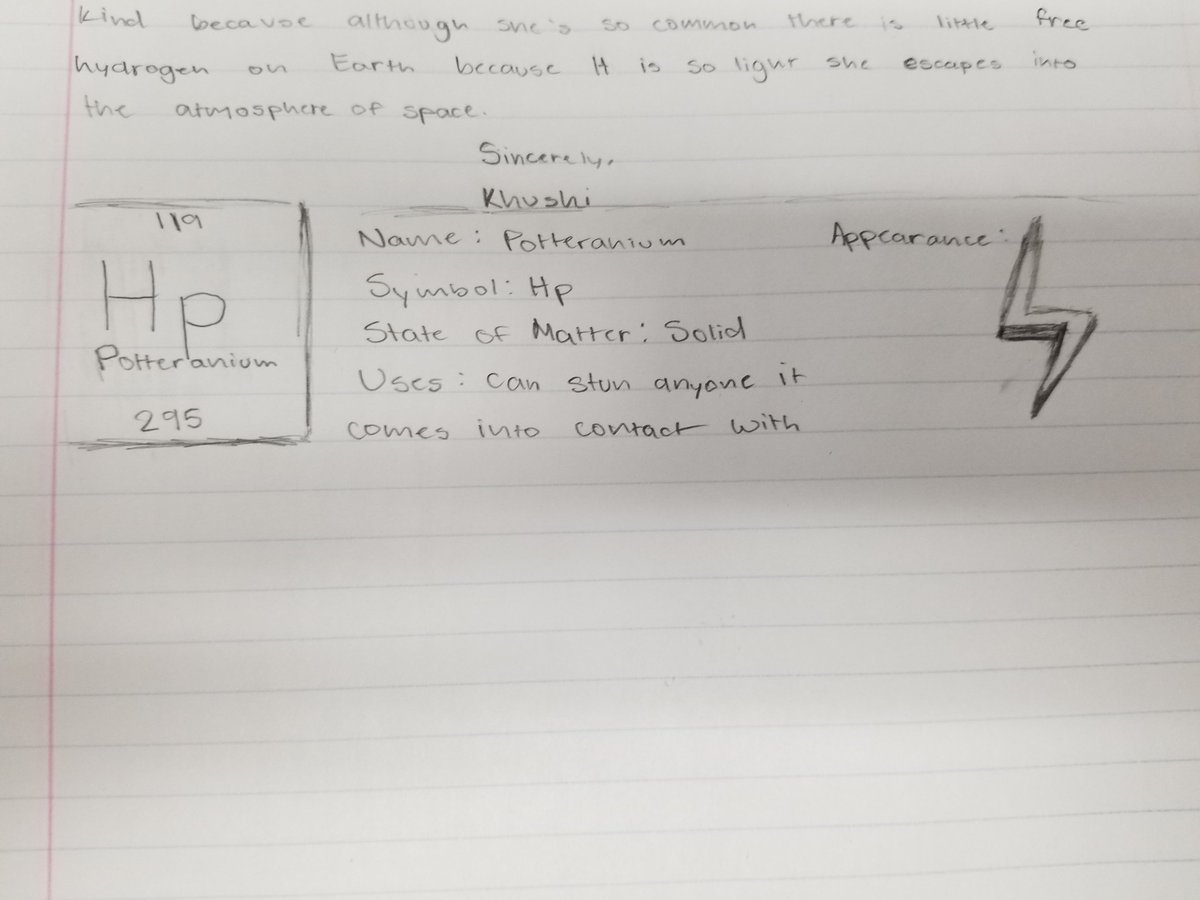 Kind because although she's so common there is little free
hydrogen on Earth because H is so light she escapes into
the atmosphere of space.
Sincerely,
Khushi
119
Hp
Potteranium
295
Name: Potteranium
Symbol: Hp
State of Matter: Solid
Uses: can stun anyone it
comes into contact with
Appearance: